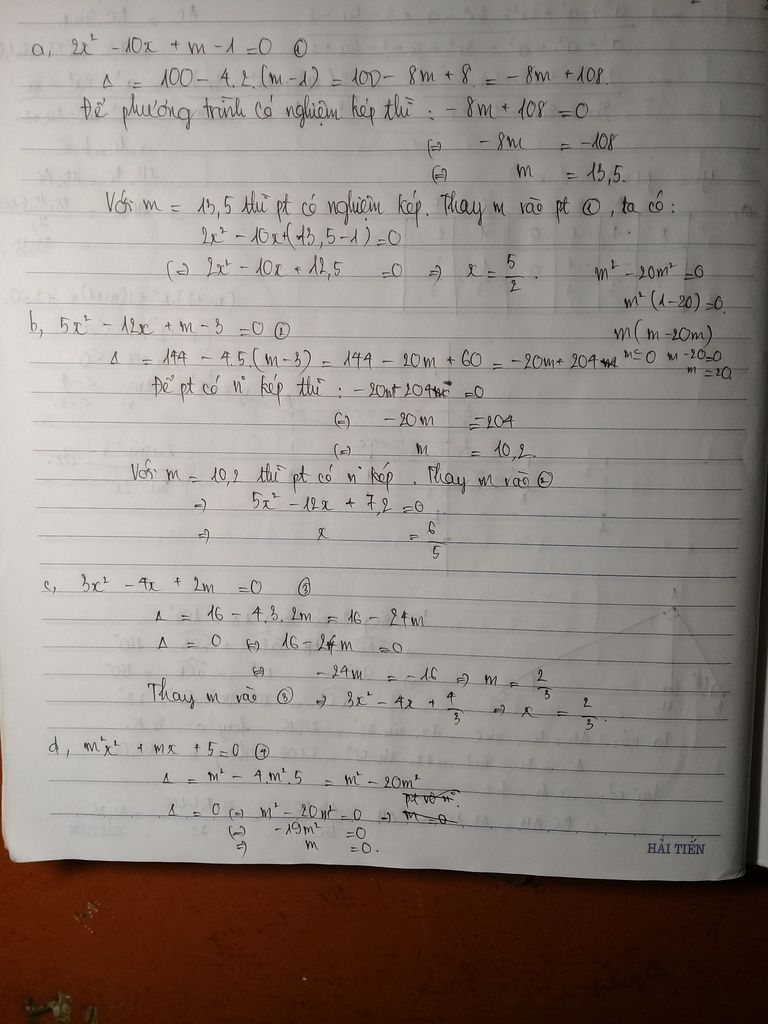 a, 2x² - 10x + m - 1 = 0 ①
Δ = 100 - 4.2.(m-1) = 100 - 8m + 8 = -8m + 108.
Để phương trình có nghiệm kép thì: -8m + 108 = 0
(=) -8m = -108
(=) m = 13,5.
Với m = 13,5 thì pt có nghiệm kép. Thay m vào pt ①, ta có:
2x² - 10x + (13,5-1) = 0
(=) 2x² - 10x + 12,5 = 0 => x = 5/2.
m² - 20m² = 0
m² (1-20) = 0.
m(m - 20m)
m = 0 m - 20 = 0
m = 20.
b, 5x² - 12x + m - 3 = 0 ②
Δ = 144 - 4.5.(m-3) = 144 - 20m + 60 = -20m + 204
Để pt có n° kép thì: -20m + 204 = 0
(=) -20m = -204
(=) m = 10,2.
Với m = 10,2 thì pt có n° kép. Thay m vào ②
=> 5x² - 12x + 7,2 = 0
=> x = 6/5
c, 3x² - 4x + 2m = 0 ③
Δ = 16 - 4.3.2m = 16 - 24m
Δ = 0 (=) 16 - 24m = 0
(=) -24m = -16 => m = 2/3
Thay m vào ③ => 3x² - 4x + 4/3 => x = 2/3.
d, m²x² + mx + 5 = 0 ④
Δ = m² - 4.m².5 = m² - 20m²
pt vô n°.
Δ = 0 (=) m² - 20m² = 0 => m = 0
(=) -19m² = 0
=> m = 0.
HẢI TIẾN